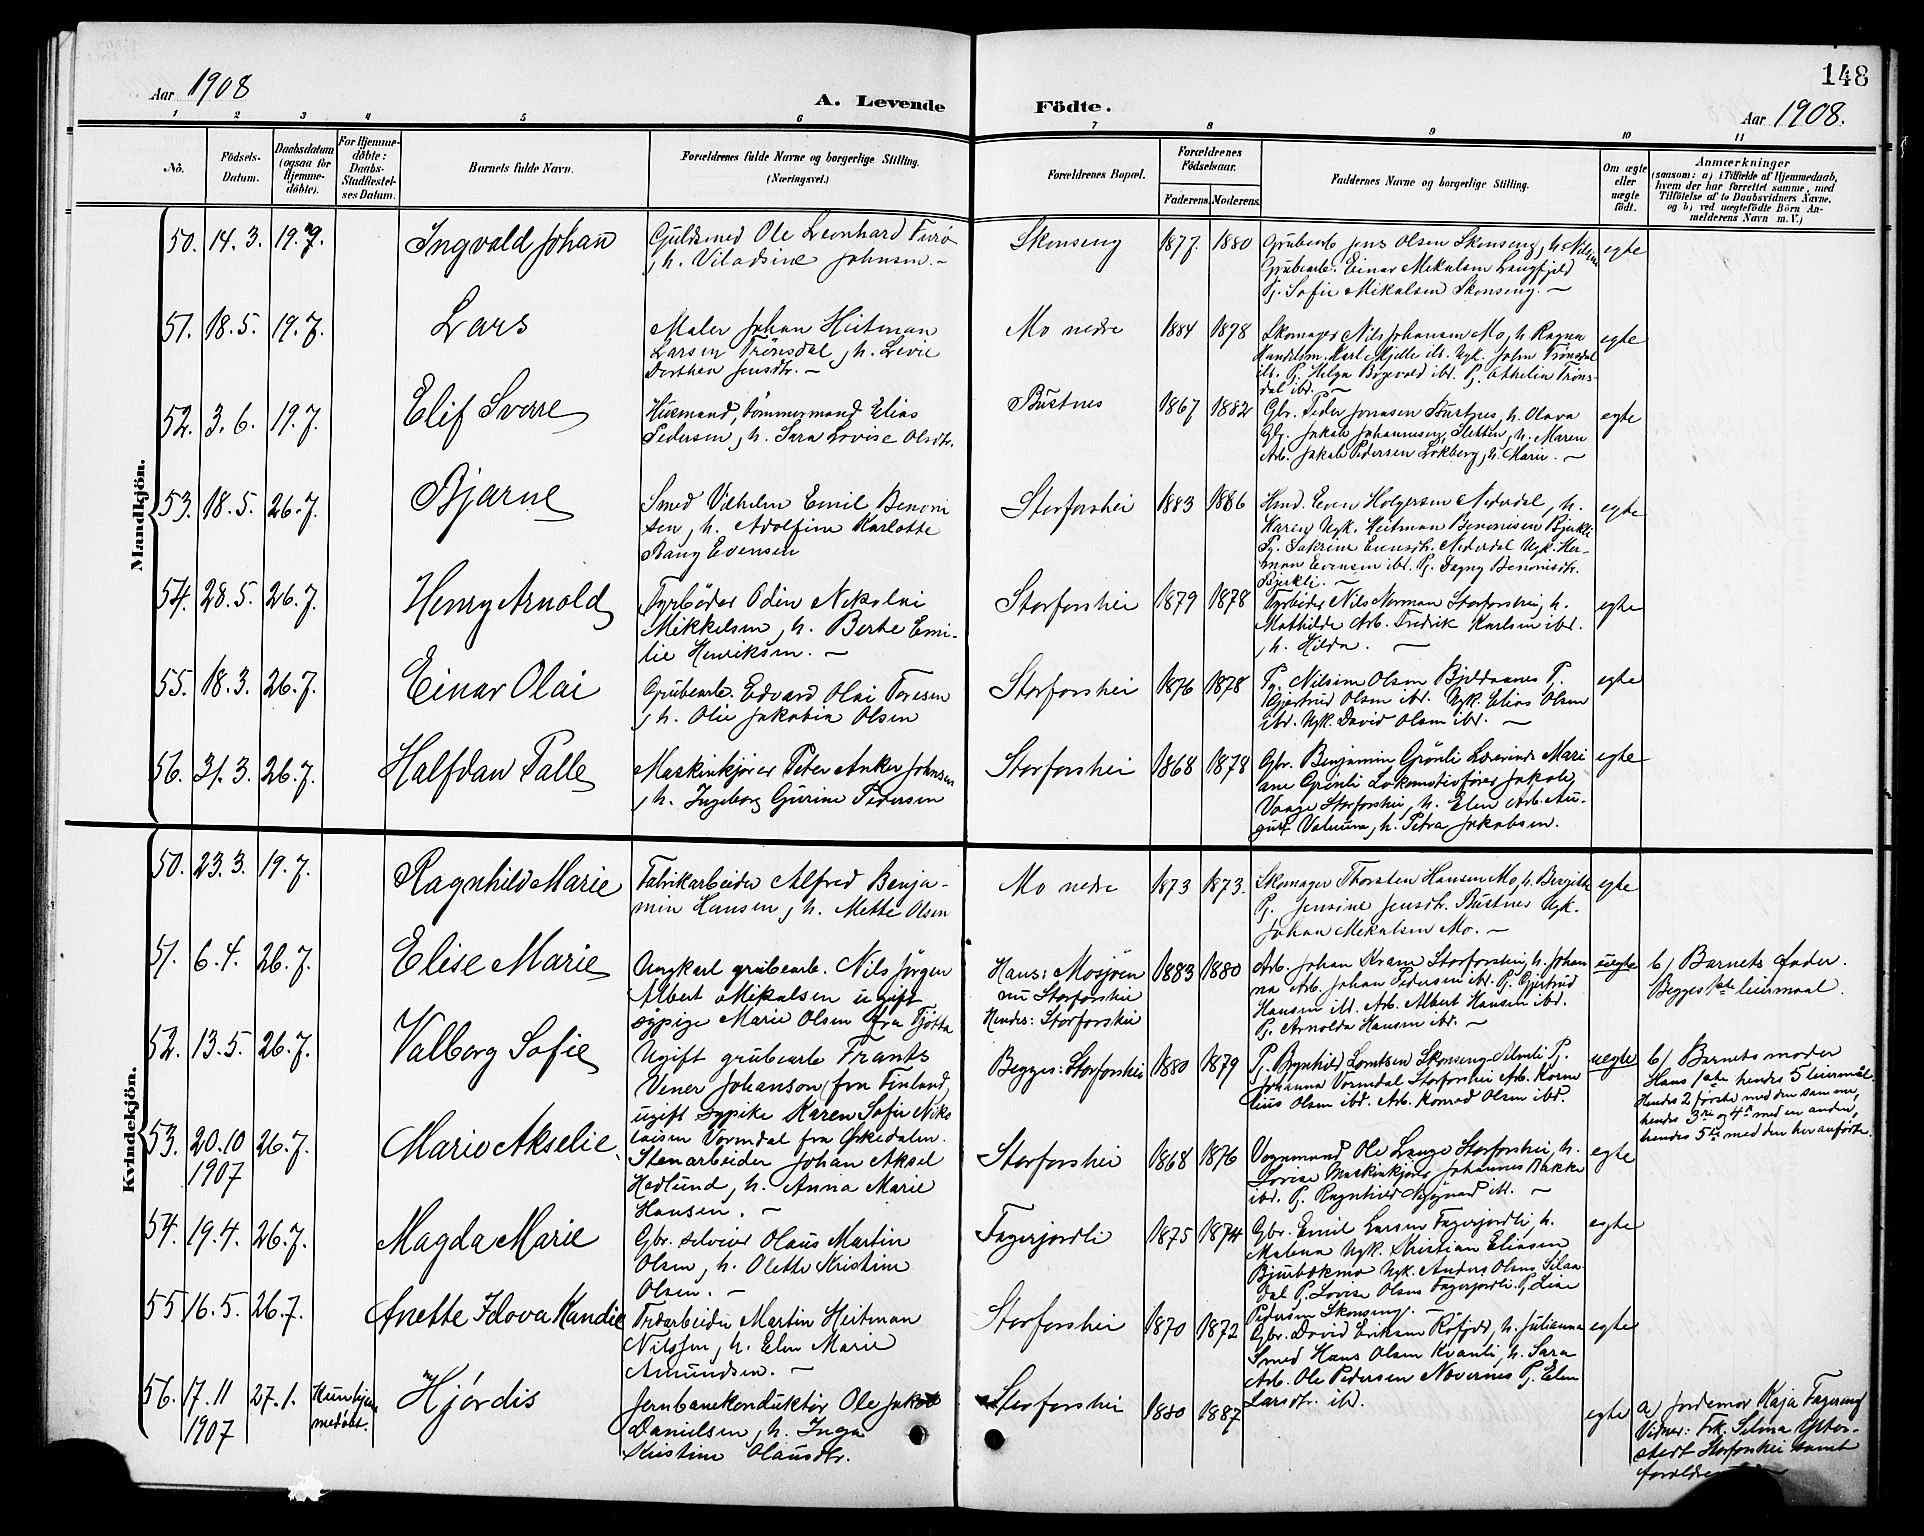 148
Aar 1908
A. Levende Födte.
Aar 1908.
1 2 3 4 5 6 7 8 9 10 11
No.
Födsels-Datum.
Daabsdatum (ogsaa for Hjemme-döbte).
For Hjemme-döbte: Daabs-Stadfæstel-ses Datum.
Barnets fulde Navn.
Forældrenes fulde Navne og borgerlige Stilling. (Næringsvei.)
Forældrenes Bopæl.
Forældrenes Födselsaar.
Faderens. Moderens.
Faddernes Navne og borgerlige Stilling.
Om ægte eller uægte födt.
Anmærkninger
(saasom: a) i Tilfælde af Hjemmedaab,
hvem der har forrettet samme, med
Tilföielse af to Daabsvidners Navne,
og b) ved uægtefödte Börn An-
melderens Navn m. V.)
Mandkjön.
50. 14. 3. 19. 7. Ingvald Johan
Guldsmed Ole Leonhard Furö
, h. Viladsine Johnsen. —
Skonseng 1877. 1880
Grubearb. Jens Olsen Skonseng, h. Nilsine
Grubearb. Einar Mikalsen Langfjeld
Pj. Sofie Mikalsen Skonseng. —
egte
51. 18. 5. 19. 7. Lars
Maler Johan Heitman
Larsen Trönsdal, h. Levie
Dorthea Jensdtr. —
Mo nedre 1884 1878
Skomager Nils Johansen Mo, h. Ragna
Handelsm. Karl Mjelle ib. Ugk. John Trönsdal
ib. Pj. Helga Bogevold ibd. Pj. Othelia Tröns-
dal ibd. —
egte
52. 3. 6. 19. 7. Elif Sverre
Husmand, Tömmermand Elias
Pedersen, h. Sara Lovise Olsdtr.
Bustnes 1867 1882
Gbr. Peder Jonasen Bustnes, h. Olava
Gbr. Jakob Johannesen Sletten, h. Maren
Arb. Jakob Pedersen Lokberg, h. Marie. —
egte
53. 18. 5. 26. 7. Bjarne
Smed Vilhelm Emil Benoni
sen, h. Adolfine Karlotte
Bang Evensen
Storforshei 1883 1886
Hmd. Even Holgersen Nederdal, h.
Karen Ugk. Heitman Benonisen Bjerkli
Pj. Sakrine Evensdtr. Nederdal Ugk. Her-
man Evensen ibd. Pj. Dagny Benonisdtr.
Bjerkli. —
egte
54. 28. 5. 26. 7. Henry Arnold
Fyrböder Odin Nikolai
Mikkelsen, h. Berte Emi-
lie Henriksen. —
Storforshei 1879 1878
Fyrböder Nils Norman Storforshei, h.
Mathilde Arb. Fredrik Karlsen ibd.
, h. Hilda. —
egte
55. 18. 3. 26. 7. Einar Olai
Grubearb. Edvard Olai Toresen
, h. Olie Jakobia Olsen
Storforshei 1876 1878
Pj. Nilsine Olsen Bjeldaanes Pj.
Gjertrud Olsen ibd. Ugk. Elias Olsen
ibd. Ugk. David Olsen ibd. —
egte
56. 31. 3. 26. 7. Halfdan Palle
Maskinkjörer Peter Anker Johnsen
, h. Ingeborg Gurine Pedersen
Storforshei 1868 1878
Gbr. Benjamin Grönli Lærerinde Mari
ane Grönli Lokomotivförer Jakob
Vaage Storforshei, h. Elen Arb. Au-
gust Valnum, h. Petra Jakobsen.
egte
Kvindekjön.
50. 23. 3. 19. 7. Ragnhild Marie
Fabrikarbeider Alfred Benja-
min Hansen, h. Mette Olsen
Mo nedre 1873 1873.
Skomager Thorsten Hansen Mo, h. Bergitte
Pj. Jensine Jensdtr. Bustnes Ugk.
Johan Mikalsen Mo. —
egte
51. 6. 4. 26. 7. Elise Marie
Ungkarl grubearb. Nils Jörgen
Albert Mikalsen ugift
sypige Marie Olsen fra Tjötta
Hans: Mosjöen
nu Storforshei
Hendes: Storforshei
1883 1880
Arb. Johan Kvam Storforshei, h. Johan
na Arb. Johan Pedersen ibd. Pj. Gjertrud
Hansen ibd. Arb. Albert Hansen ibd.
Pj. Arnolda Hansen ibd. —
uegte
b) Barnets fader.
Begges 1ste leiermaal.
52. 13. 5. 26. 7. Valborg Sofie
Ugift grubearb. Frants
Vener Johanson (fra Finland),
ugift sypike Karen Sofie Niko
laisen Vormdal fra Orkedalen.
Begges: Storforshei 1880 1879
Pj. Brynhild Lorntsen Skonseng Almli Pj.
Johanna Vormdal Storforshei Arb. Korne
lius Olsen ibd. Arb. Konrad Olsen ibd.
uegte
b) Barnets moder
Hans 1ste hendes 5 leiermål
Hendes 2 første med den samme,
hendes 3die og 4de med en anden,
hendes 5te med den her anførte.
53. 20. 10 1907 26. 7. Marie Akselie
Stenarbeider Johan Aksel
Hedlund, h. Anna Marie
Hansen. —
Storforshei 1868 1876
Vognmand Ole Lange Storforshei, h.
Lovise Maskinkjörer Johannes Bakke
ibd. Pj. Ragnhild Nygaard ibd. —
egte
54. 19. 4. 26. 7. Magda Marie
Gbr. selveier Olaus Martin
Olsen, h. Olette Kristine
Olsen. —
Fagerjordli 1875 1874
Gbr. Emil Larsen Fagerjordli, h.
Malena Ugk. Kristian Eliasen
Bjurbækmo Ugk. Anders Olsen Silaa-
dal Pj. Lovise Olsen Fagerjordli Pj. Line
Pedersen Skonseng. —
egte
55 16. 5. 26. 7. Anette Idova Kandie
Træarbeider Martin Heitman
Nilssen, h. Elen Marie
Amundsen. —
Storforshei 1870 1872
Gbr. David Eriksen Röfjeld, h. Julianna
Smed Hans Olsen Kvanli, h. Sara
Arb. Ole Pedersen Novernes Pj. Elen
Larsdtr. ibd.
egte
56. 17. 11 1907 27. 1. Kun hjem medöbt. Hjördis
Jernbanekonduktör Ole Jakob
Danielsen, h. Inga
Kristine Olausdtr.
Storforshei 1880 1887
egte
a) Jordemor Kaja Fagereng
Vidner: Frk. Selma Yter-
stedt Storforshei samt
forældrene